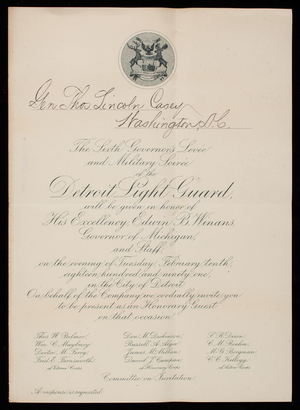 Gen. Thos. Lincoln Casey
Washington D.C.
The Sixth Governor's Levee
and Military Soiree
of the
Detroit Light Guard,
will be given in honor of
His Excellency, Edwin B. Winans,
Governor of Michigan,
and Staff,
on the evening of Tuesday, February tenth,
eighteen hundred and ninety one,
in the City of Detroit.
On behalf of the Company we cordially invite you
to be present as an Honorary Guest
on that occasion.
Wm. C. Maybury
Fred E. Farnsworth
Don M. Dickinson
Russell A. Alger
James McMillan
Daniel J. Campau
Committee on Invitation.
A response is requested.